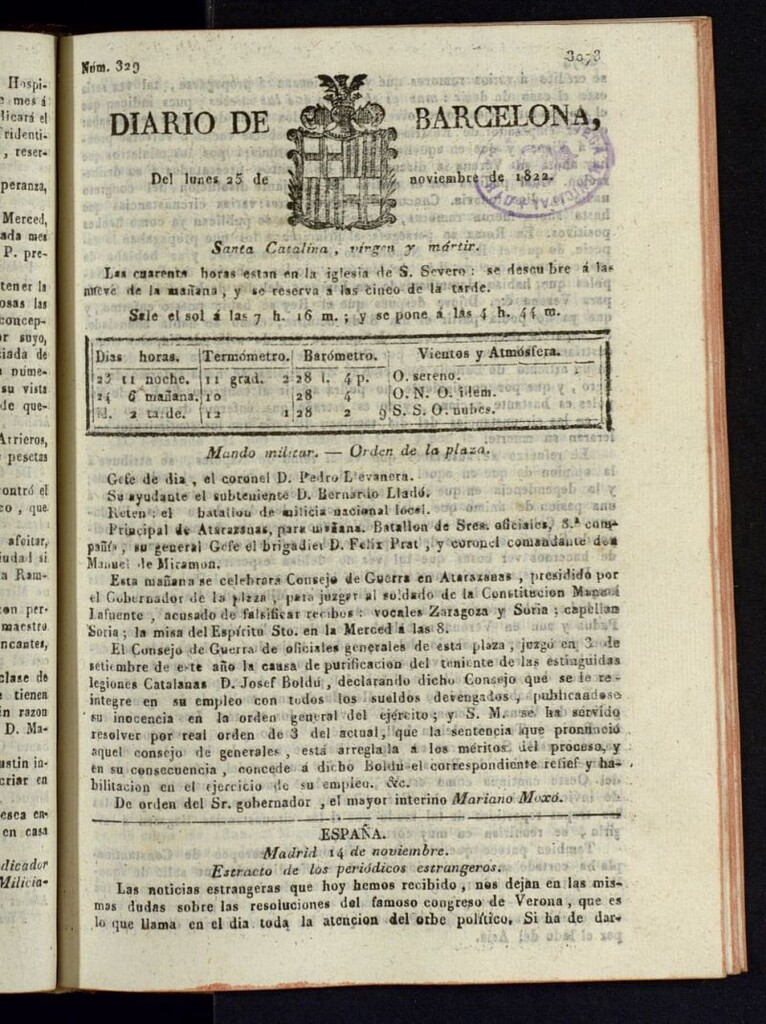 Hospi-
e mes á
licará el
ridenti-
, reser-
peranza,
Merced,
ada mes
P. pre-
tener la
osas las
concep-
r suyo,
iada de
nume-
su vista
de que-
Arrieros,
pesetas
ontró el
co, que
afeitar,
iudad si
a Ram-
con per-
maestro
ncantes,
clase de
tienen
in razon
D. Ma-
ustin in-
criar en
esea en-
en casa
dicador
Milicia-
Núm. 329
3073
DIARIO DE BARCELONA,
Del lunes 25 de noviembre de 1822.
Santa Catalina, virgen y mártir.
Las cuarenta horas estan en la iglesia de S. Severo: se descubre á las
nueve de la mañana, y se reserva á las cinco de la tarde.
Sale el sol á las 7 h. 16 m.; y se pone á las 4 h. 44 m.
Dias horas. Termómetro. Barómetro. Vientos y Atmósfera.
23 11 noche. 11 grad. 2 28 l. 4 p. O. sereno.
24 6 mañana. 10 28 4 O. N. O. idem.
id. 2 tarde. 12 1 28 2 9 S. S. O. nubes.
Mando militar. — Orden de la plaza.
Gefe de dia, el coronel D. Pedro L'evanera.
Su ayudante el subteniente D. Bernardo Lladó.
Reten: el batallon de milicia nacional local.
Principal de Atarazanas, para mañana. Batallon de Sres. oficiales, 3.ª com-
pañía, su general Gefe el brigadier D. Felix Prat, y coronel comandante don
Manuel de Miramon.
Esta mañana se celebrará Consejo de Guerra en Atarazanas, presidido por
el Gobernador de la plaza, para juzgar al soldado de la Constitucion Manuel
Lafuente, acusado de falsificar recibos: vocales Zaragoza y Soria; capellan
Soria; la misa del Espíritu Sto. en la Merced á las 8.
El Consejo de Guerra de oficiales generales de esta plaza, juzgó en 3 de
setiembre de este año la causa de purificacion del teniente de las estinguidas
legiones Catalanas D. Josef Boldú, declarando dicho Consejo que se le re-
integre en su empleo con todos los sueldos devengados, publicandose
su inocencia en la orden general del ejército; y S. M. se ha servido
resolver por real orden de 3 del actual, que la sentencia que pronunció
aquel consejo de generales, está arreglada á los méritos del proceso, y
en su consecuencia, concede á dicho Boldú el correspondiente relief y ha-
bilitacion en el ejercicio de su empleo. &c.
De orden del Sr. gobernador, el mayor interino Mariano Moxó.
ESPAÑA.
Madrid 14 de noviembre.
Estracto de los periódicos estrangeros.
Las noticias estrangeras que hoy hemos recibido, nos dejan en las mis-
mas dudas sobre las resoluciones del famoso congreso de Verona, que es
lo que llama en el dia toda la atencion del orbe político. Si ha de dar-